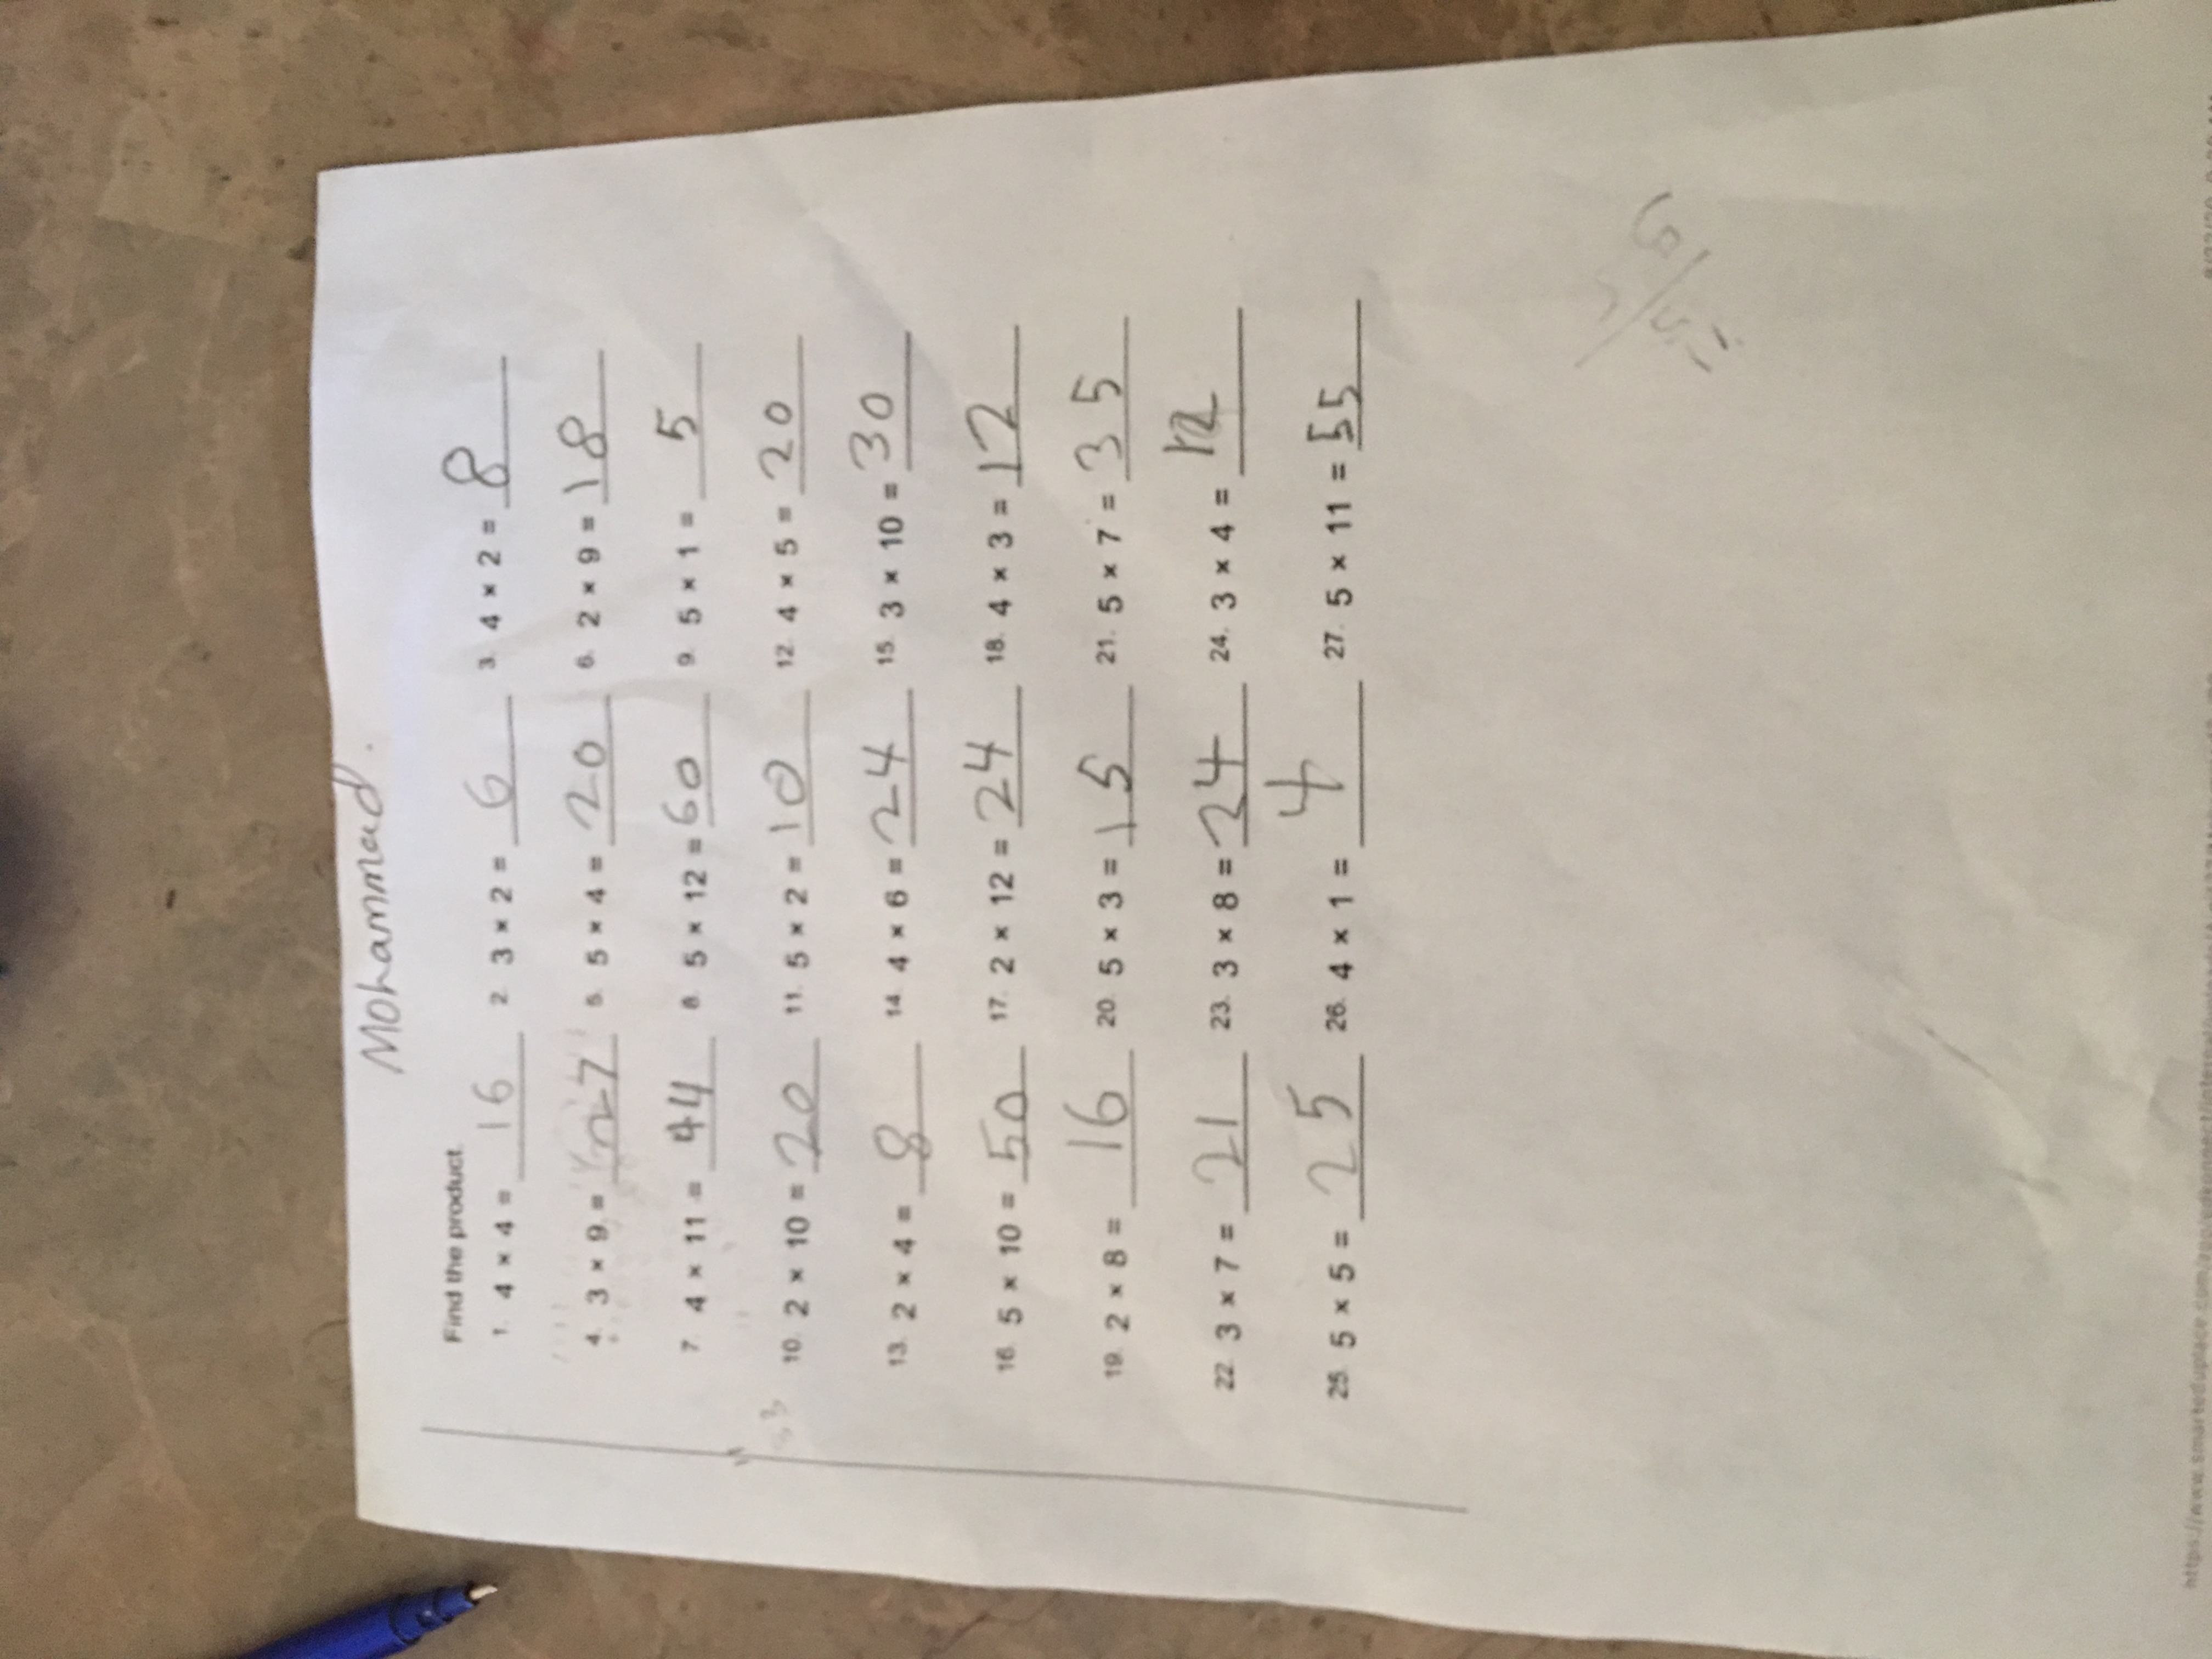 Mohammad.
Find the product.
1. 4 × 4 = 16 2. 3 × 2 = 6 3. 4 × 2 = 8
4. 3 × 9 = 27 5. 5 × 4 = 20 6. 2 × 9 = 18
7. 4 × 11 = 44 8. 5 × 12 = 60 9. 5 × 1 = 5
10. 2 × 10 = 20 11. 5 × 2 = 10 12. 4 × 5 = 20
13. 2 × 4 = 8 14. 4 × 6 = 24 15. 3 × 10 = 30
16. 5 × 10 = 50 17. 2 × 12 = 24 18. 4 × 3 = 12
19. 2 × 8 = 16 20. 5 × 3 = 15 21. 5 × 7 = 35
22. 3 × 7 = 21 23. 3 × 8 = 24 24. 3 × 4 = 12
25. 5 × 5 = 25 26. 4 × 1 = 4 27. 5 × 11 = 55